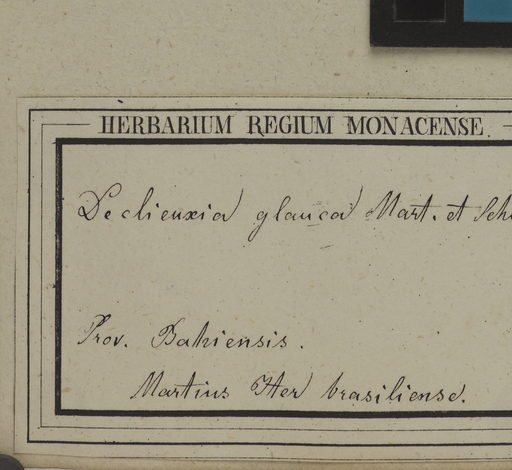 HERBARIUM REGIUM MONACENSE.
Declieuxia glauca Mart. et Sch
Prov. Bahiensis.
Martius Iter brasiliense.